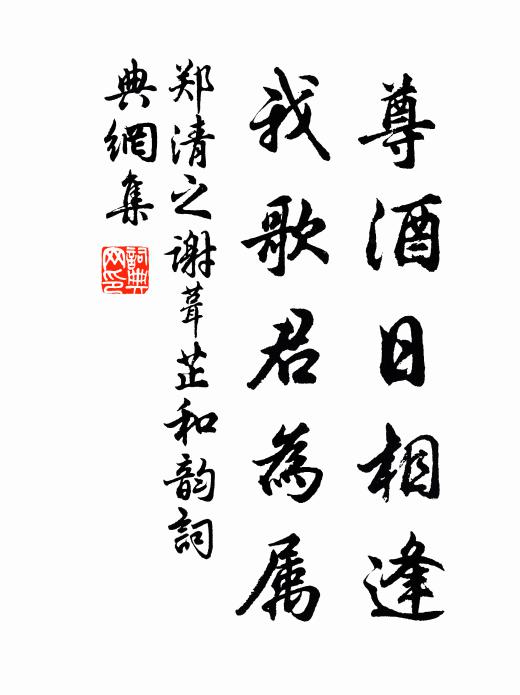 尊酒日相逢
我歌君為属
郑清之谢葺芷和韵詞
典網集
詞典網印